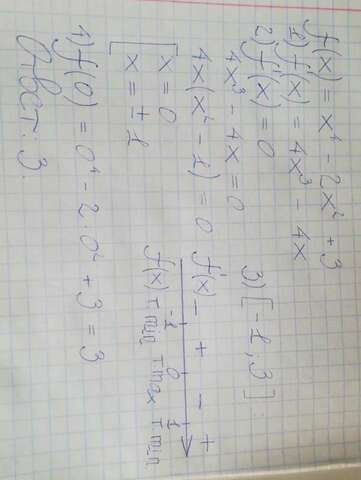 f(x) = x⁴ - 2x² + 3
1) f'(x) = 4x³ - 4x
2) f'(x) = 0
4x³ - 4x = 0
4x(x² - 1) = 0
[ x = 0
x = ±1
3) [-1, 3]:
f'(x) - + - +
-1 0 1
f(x) т.min т.max т.min
1) f(0) = 0⁴ - 2·0² + 3 = 3
Ответ: 3.